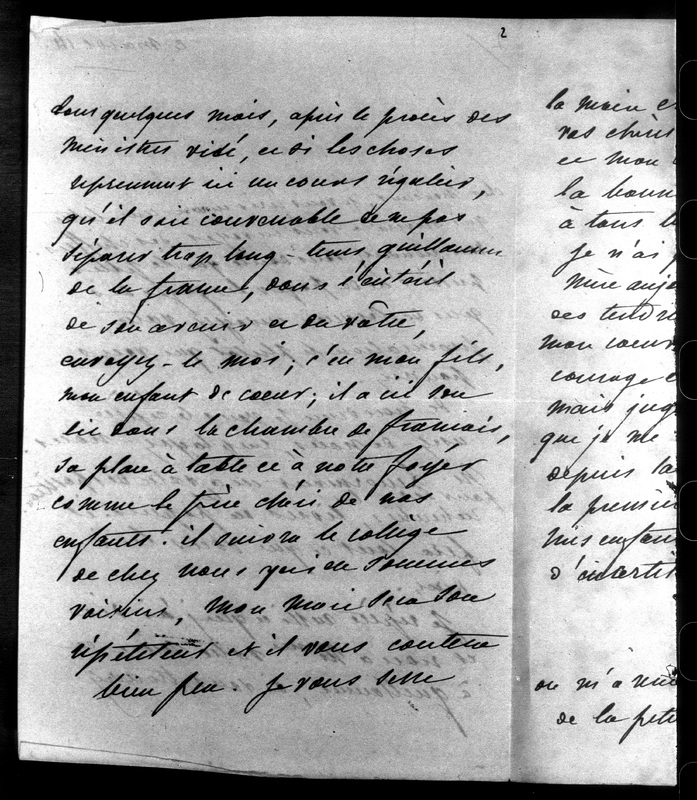 2
dans quelques mois, après le procès des
ministres vidé, et si les choses
reprennent ici un cours régulier,
qu'il soit convenable de ne pas
séparer trop long-tems guillaume
de la france, dans l'intérêt
de son avenir et du vôtre,
envoyez-le moi; c'est mon fils,
mon enfant de coeur; il a ici son
lit dans la chambre de francois,
sa place à table et à notre foyer
comme le frère chéri de nos
enfants. il suivra le collège
de chez nous qui en sommes
voisins, mon mari sera son
répétiteur et il vous coutera
bien peu. je vous serre
la main
vos chers
et mon
la bonn
à tous
je n'ai
Mère aujo
des tendre
mon coeur
courage
mais jug
que je me
depuis la
la premiè
mes enfan
d'
on m'a
de la peti